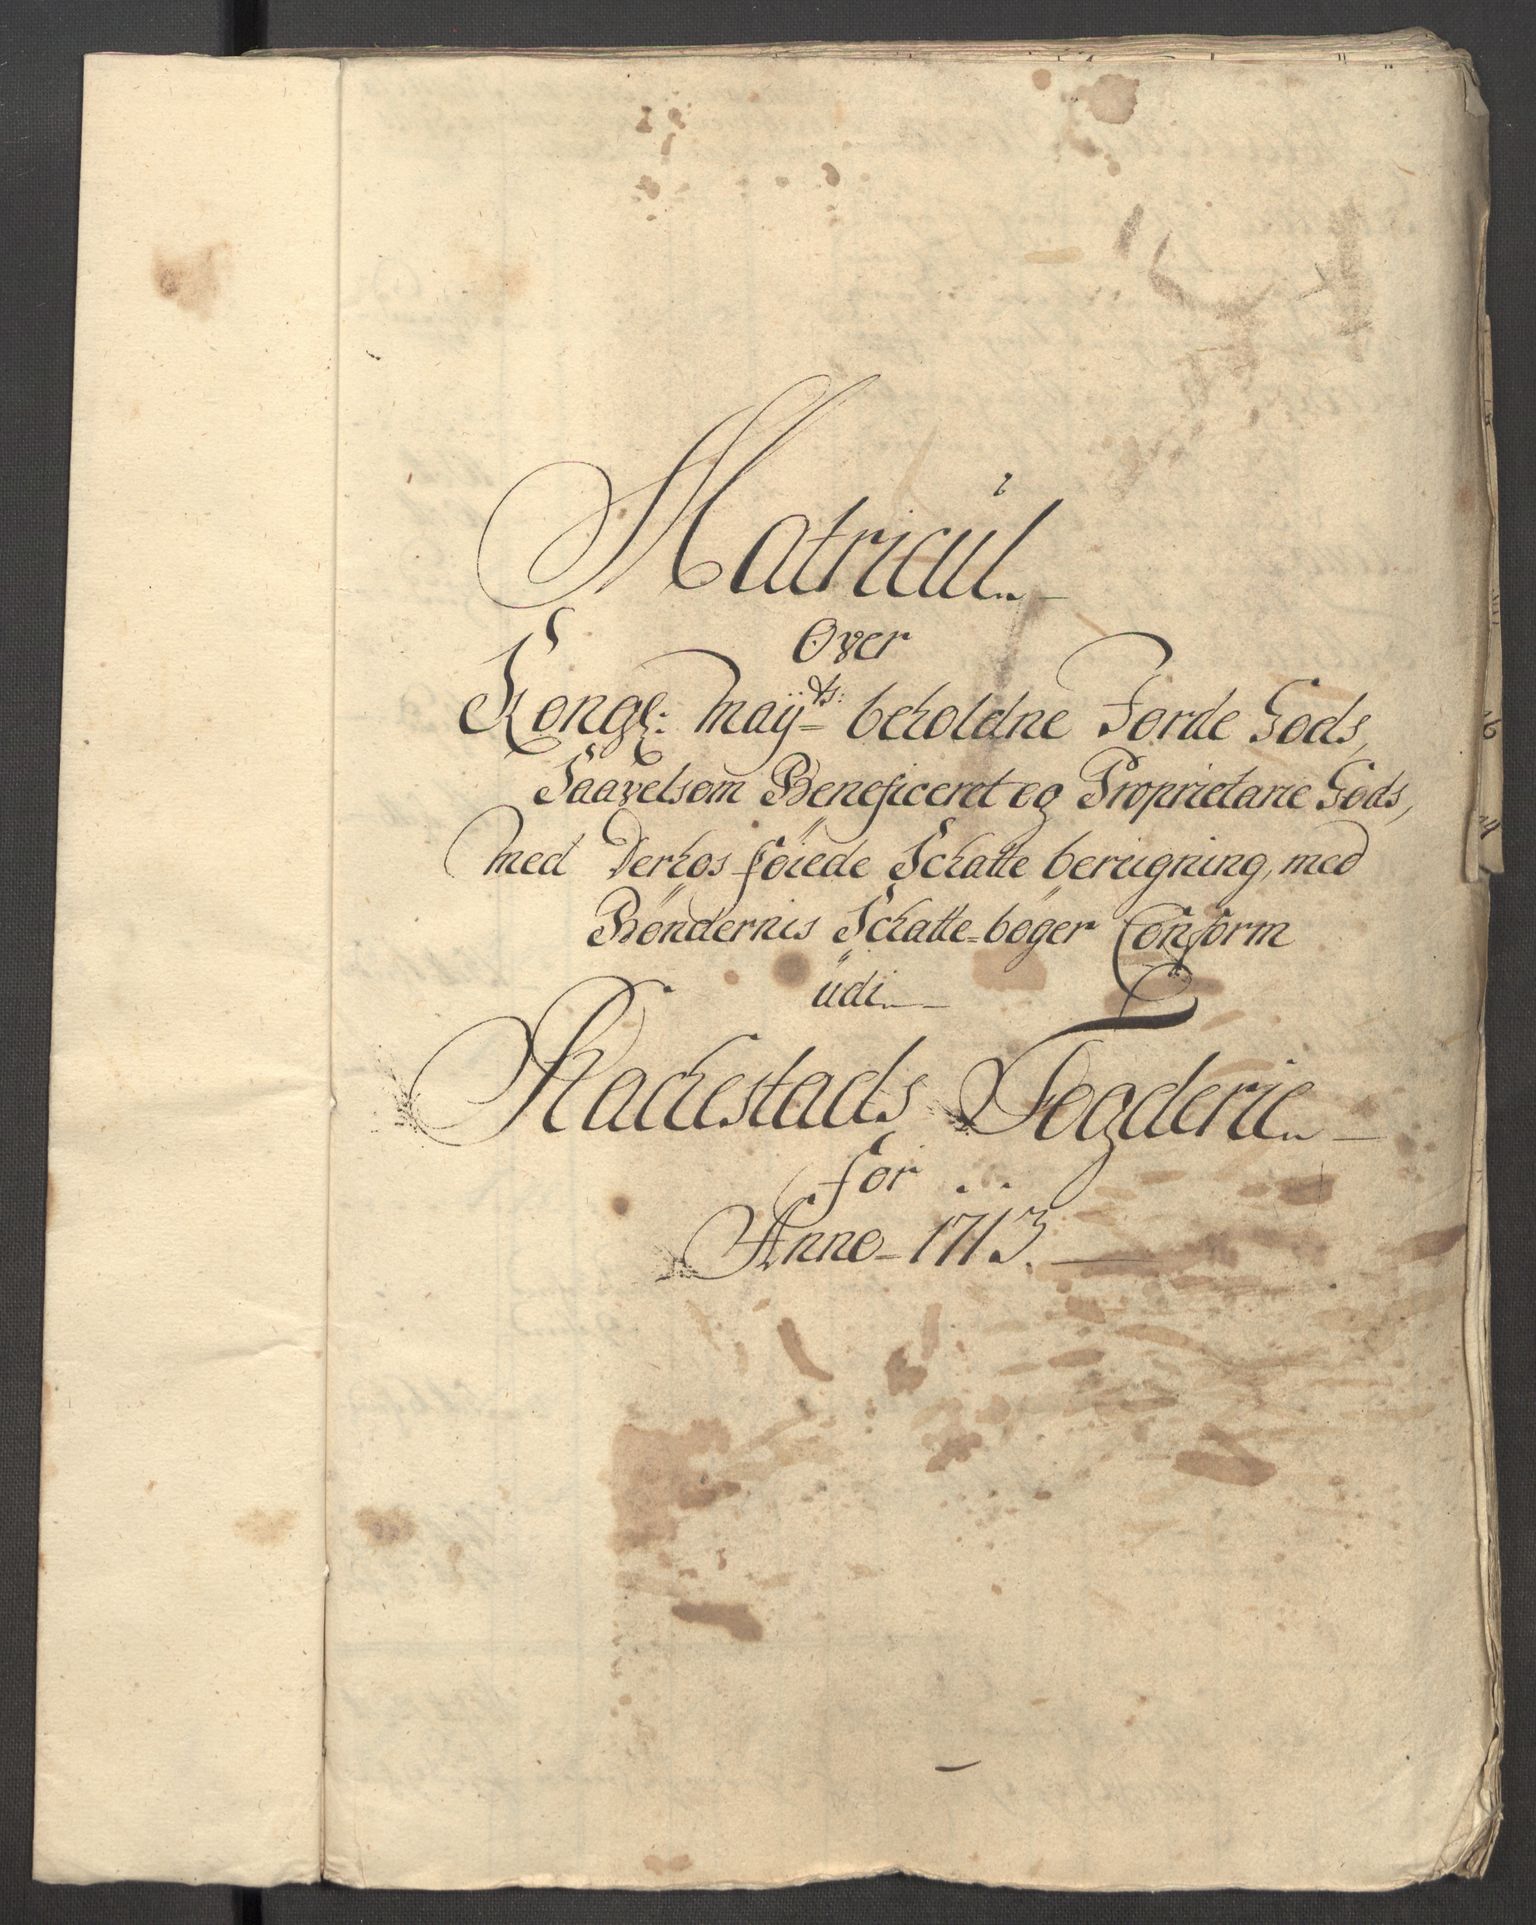 Matricul
Over
Kongl: Maÿts: beholdne Jorde Gods,
Saavelsom Beneficeret og Proprietarie Gods,
Med Derhos föiede Schatte beregning, med
Böndernis Schatte-böger Conform
üdi
Rachestads Fogderie
for
Anno 1713.